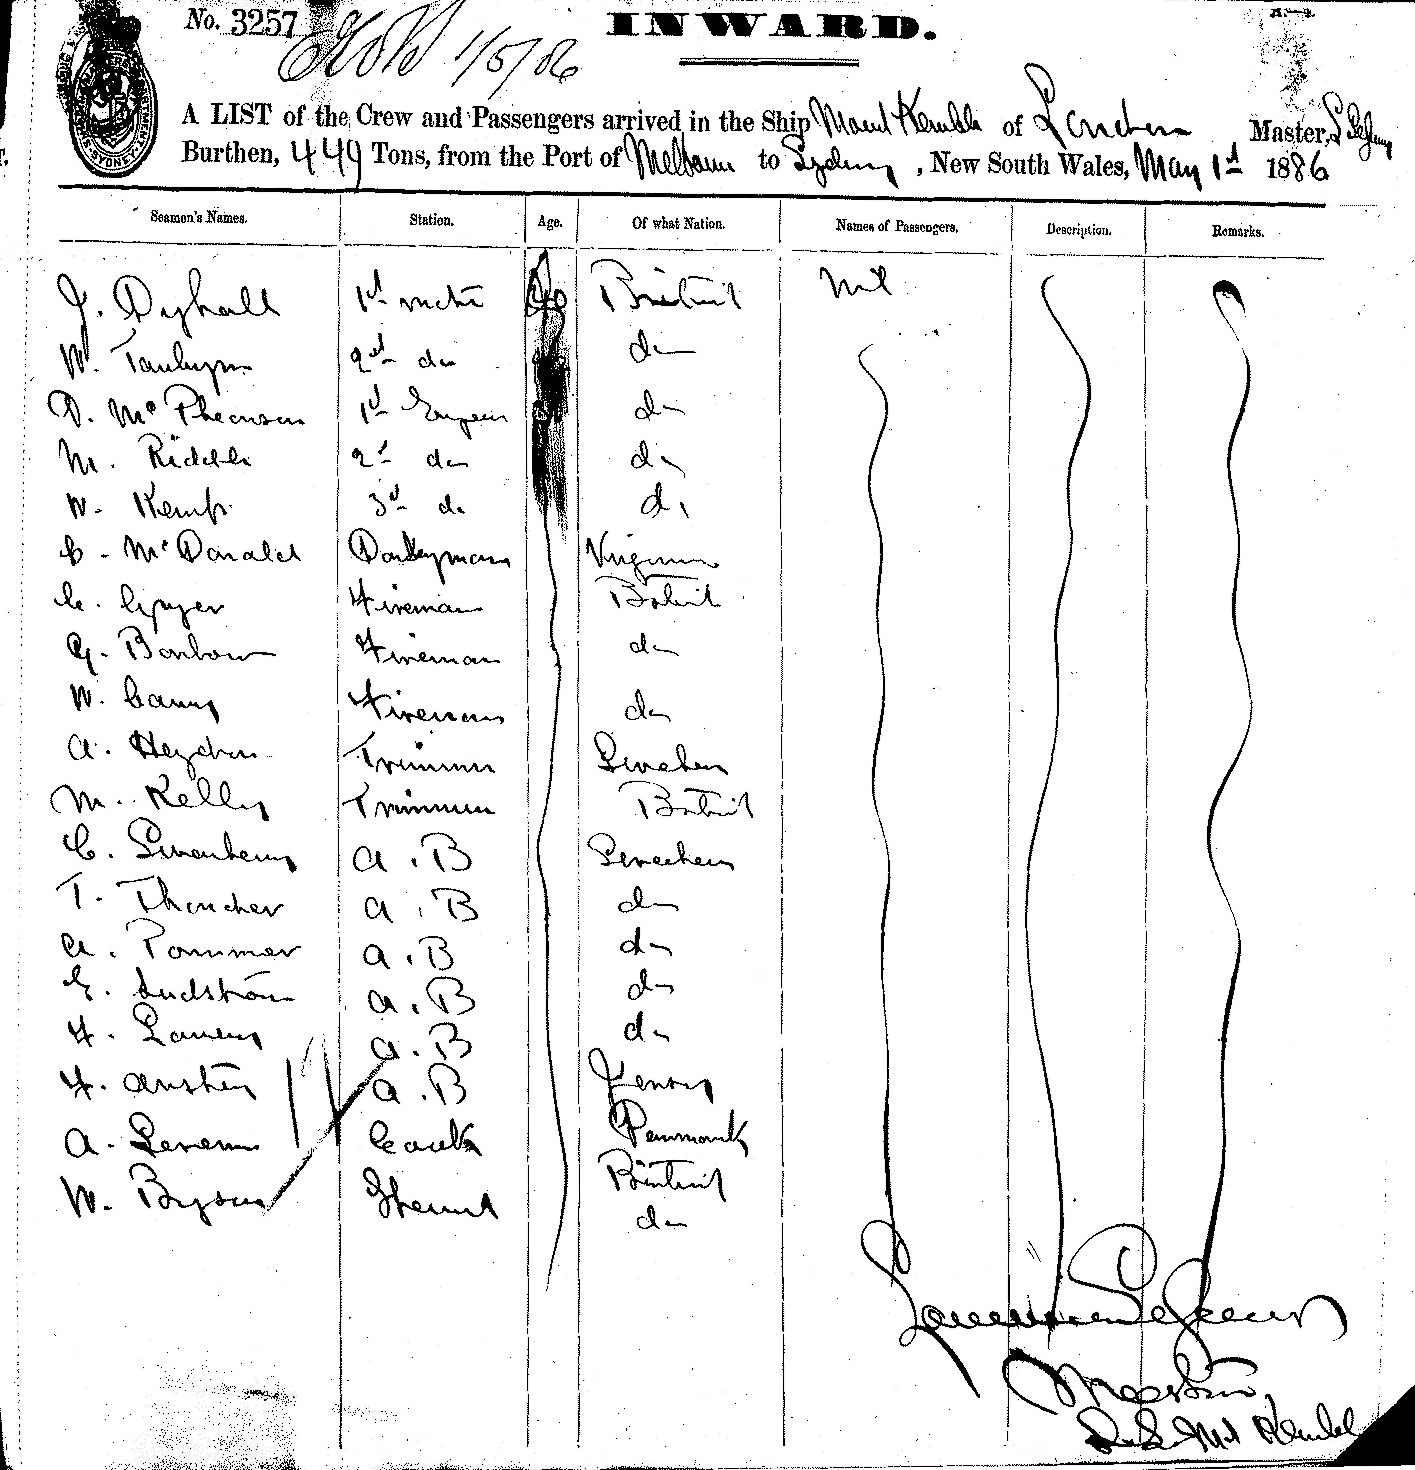 No. 3257
1/5/86
INWARD.
A LIST of the Crew and Passengers arrived in the Ship Mount Kembla of London Master,
Burthen, 449 Tons, from the Port of Melbourne to Sydney, New South Wales, May 1st 1886
Seamen's Names. Station. Age. Of what Nation. Names of Passengers. Description. Remarks.
J. Dyhall 1st mate 40 British Nil
W. 2nd do do
D. McPhearson 1st Engineer do
M. Riddle 2nd do do
W. Kemp 3rd do do
C. McDonald Donkeyman Virginia
C. Gyger Fireman British
G. Barlow Fireman do
W. Fireman do
A. Heyden Trimmer Sweden
M. Kelly Trimmer British
C. A.B Sweden
T. A.B do
A. Pommer A.B do
E. Ludström A.B do
F. A.B do
F. Austen A.B
A. Cook Denmark
W. Bryson Steward British
do
17
Master
S.S. Mt Kembla